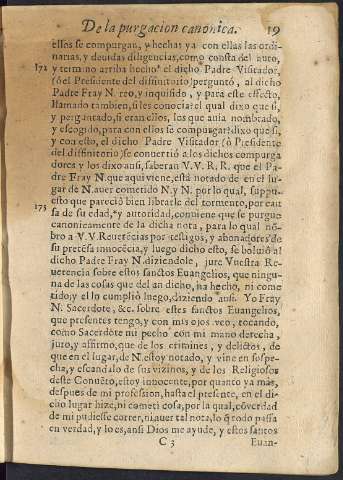 De la purgacion canonica. 19
ellos se compurgan, y hechas ya con ellas las ordi-
narias, y deuidas diligencias, como consta del auto,
172 y termino arriba hecho* el dicho Padre Visitador,
(ò el Presidente del diffinitorio) perguntó, al dicho
Padre Fray N. reo, y inquisido, y para este effecto,
llamado tambien, si les conocia? el qual dixo que si,
y perguntado, si eran ellos, los que auia nombrado,
y escogido, para con ellos se compurgar? dixo que si,
y con esto, el dicho Padre Visitador (ò Presidente
del diffinitorio) se conuertió a los dichos compurga
dores y los dixo ansi, saberan V.V. R. R. que el Pa-
dre Fray N. que aqui viene, està notado de en el lu-
gar de N. auer cometido N. y N. por lo qual, suppu-
esto que pareció bien librarle del tormento, por cau
173 sa de su edad,* y autoridad, conuiene que se purgue
canonicamente de la dicha nota, para lo qual nõ-
bro a V.V. Reuerẽcias por testigos, y abonadores de
su pretẽsa innocẽcia, y luego dicho esto, se boluió al
dicho Padre Fray N. diziendole, jure Vuestra Re
uerencia sobre estos sanctos Euangelios, que ningu-
na de las cosas que del an dicho, ha hecho, ni come
tido; y el lo cumplió luego, diziendo ansi. Yo Fray
N. Sacerdote, &c. sobre estes sanctos Euangelios,
que presentes tengo, y con mis ojos veo, tocando,
como Sacerdote mi pecho con mi mano derecha,
juro, y affirmo, que de los crimines, y delictos, de
que en el lugar, de N. estoy notado, y vine en sospe-
cha, y escandalo de sus vizinos, y de los Religiosos
deste Conuẽto, estoy innocente, por quanto ya mas,
despues de mi profession, hasta el presente, en el di-
cho lugar hize, ni cometi cosa, por la qual, cõ verdad
de mi pudiesse correr, ni auer tal nota, lo q̃ todo passa
en verdad, y lo es, ansi Dios me ayude, y estos santos
C 3 Euan-